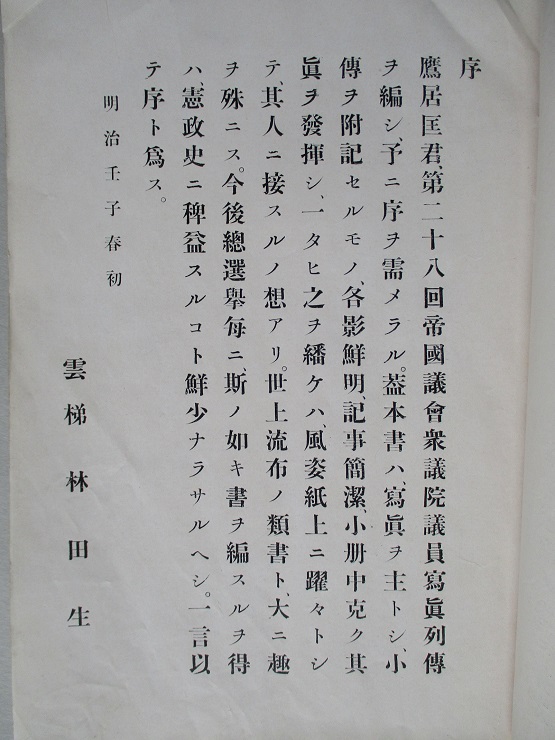 序
鷹居匡君、第二十八回帝國議會衆議院議員寫眞列傳
ヲ編シ、予ニ序ヲ需メラル。蓋本書ハ、寫眞ヲ主トシ、小
傳ヲ附記セルモノ、各影鮮明、記事簡潔、小册中克ク其
眞ヲ發揮シ、一タヒ之ヲ繙ケハ、風姿紙上ニ躍々トシ
テ、其人ニ接スルノ想アリ。世上流布ノ類書ト、大ニ趣
ヲ殊ニス。今後總選擧每ニ、斯ノ如キ書ヲ編スルヲ得
ハ、憲政史ニ稗益スルコト鮮少ナラサルヘシ。一言以
テ序ト爲ス。
明治壬子春初
雲梯林田生